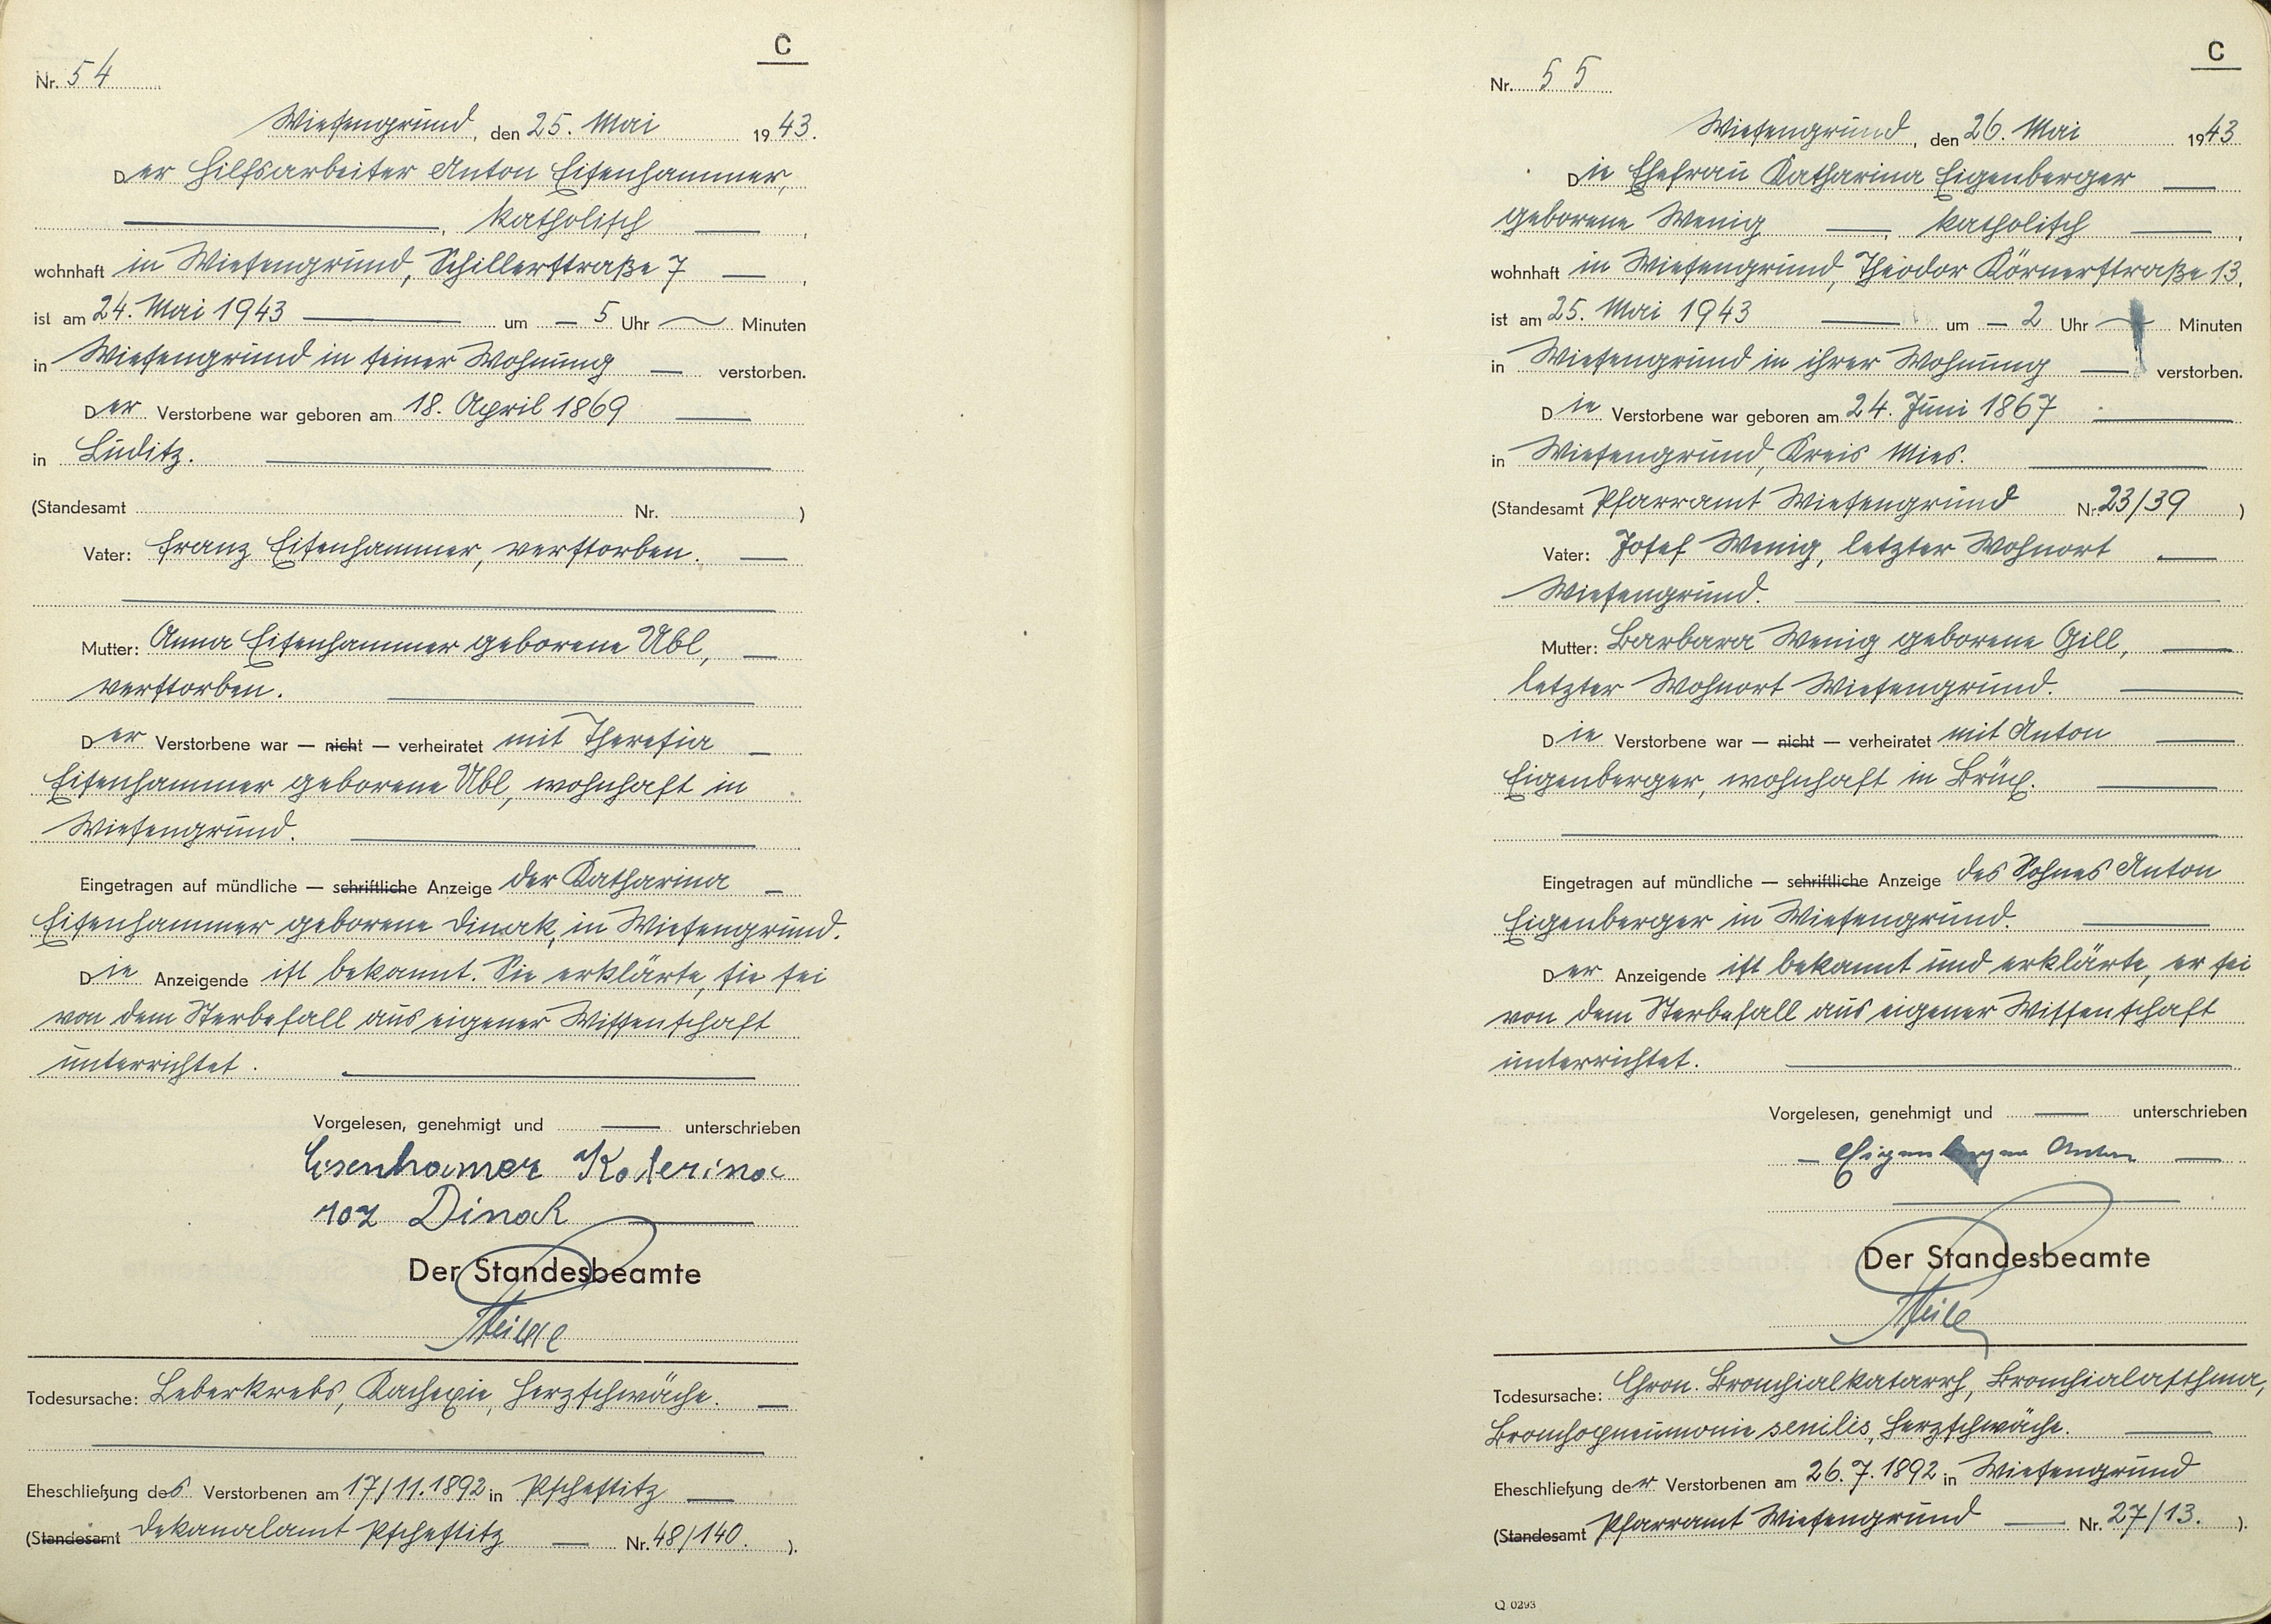 C
Nr. 54
Wiesengrund, den 25. Mai 1943.
Der Hilfsarbeiter Anton Eisenhammer,
katholisch
wohnhaft in Wiesengrund, Schillerstraße 7
ist am 24. Mai 1943 um — 5 Uhr Minuten
in Wiesengrund in seiner Wohnung verstorben.
Der Verstorbene war geboren am 18. April 1869
in Luditz.
(Standesamt Nr. )
Vater: Franz Eisenhammer, verstorben.
Mutter: Anna Eisenhammer geborene Übl,
verstorben.
Der Verstorbene war — nicht — verheiratet mit Theresia
Eisenhammer geborene Übl, wohnhaft in
Wiesengrund.
Eingetragen auf mündliche — schriftliche Anzeige der Katharina
Eisenhammer geborene Dinak, in Wiesengrund.
Die Anzeigende ist bekannt. Sie erklärte, sie sei
von dem Sterbefall aus eigener Wissenschaft
unterrichtet.
Vorgelesen, genehmigt und unterschrieben
Eisenhamer Katerina
roz Dinak
Der Standesbeamte
Todesursache: Leberkrebs, Kachexie, Herzschwäche.
Eheschließung des Verstorbenen am 17/11.1892 in Pschestitz
(Standesamt Dekanalamt Pschestitz Nr. 48/140. ).
C
Nr. 55
Wiesengrund, den 26. Mai 1943
Die Ehefrau Katharina Eigenberger
geborene Wenig, katholisch,
wohnhaft in Wiesengrund, Theodor Körnerstraße 13,
ist am 25. Mai 1943 um — 2 Uhr Minuten
in Wiesengrund in ihrer Wohnung verstorben.
Die Verstorbene war geboren am 24. Juni 1867
in Wiesengrund, Kreis Mies.
(Standesamt Pfarramt Wiesengrund Nr. 23/39 )
Vater: Josef Wenig, letzter Wohnort
Wiesengrund.
Mutter: Barbara Wenig geborene Gill,
letzter Wohnort Wiesengrund.
Die Verstorbene war — nicht — verheiratet mit Anton
Eigenberger, wohnhaft in Brüx.
Eingetragen auf mündliche — schriftliche Anzeige des Sohnes Anton
Eigenberger in Wiesengrund.
Der Anzeigende ist bekannt und erklärte, er sei
von dem Sterbefall aus eigener Wissenschaft
unterrichtet.
Vorgelesen, genehmigt und unterschrieben
Eigenberger Anton
Der Standesbeamte
Todesursache: Chron. Bronchialkatarrh, Bronchialasthma,
Bronchopneumonie senilis, Herzschwäche.
Eheschließung der Verstorbenen am 26.7.1892 in Wiesengrund
(Standesamt Pfarramt Wiesengrund Nr. 27/13. ).
Q 0293